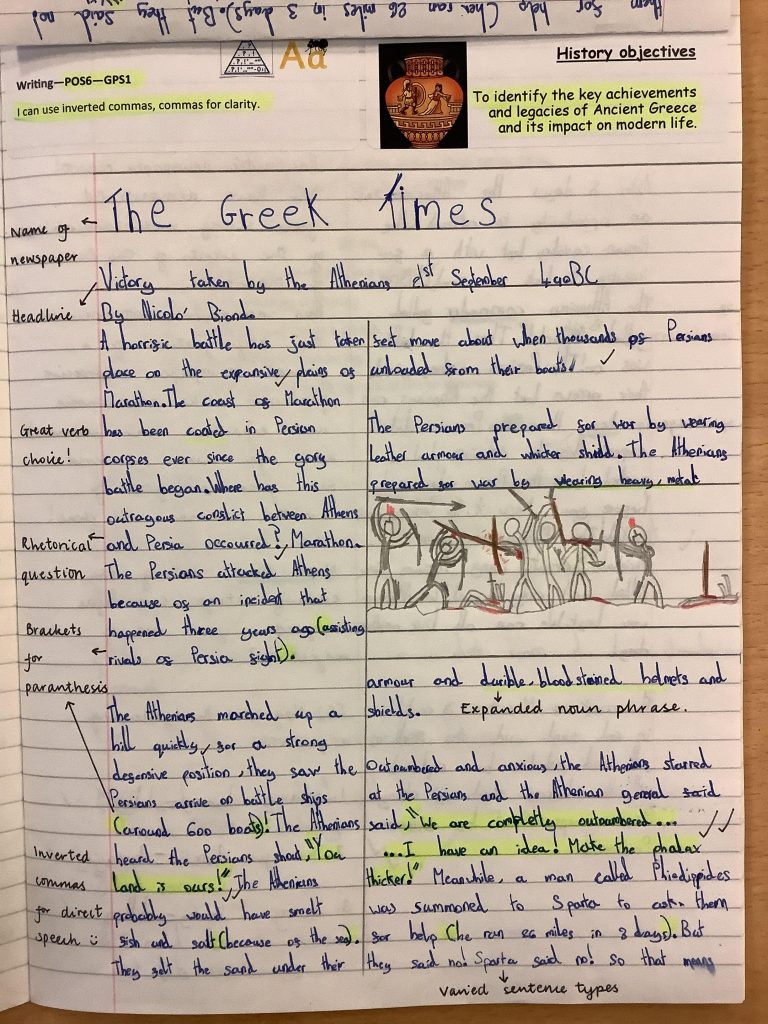 them for help (he ran 26 miles in 3 days). But they said no!
Writing—POS6—GPS1
I can use inverted commas, commas for clarity.
Aa
History objectives
To identify the key achievements
and legacies of Ancient Greece
and its impact on modern life.
The Greek Times
Name of
newspaper
Victory taken by the Athenians 21st September 490BC
Headline
By Nicolo' Biondo
A horrific battle has just taken
place on the expansive plains of
Marathon. The coast of Marathon
has been coated in Persian
corpses ever since the gory
battle began. Where has this
outragous conflict between Athens
and Persia occoured? Marathon.
The Persians attacked Athens
because of an incident that
happened three years ago (assisting
rivals of Persia fight).
The Athenians marched up a
hill quickly, for a strong
defensive position, they saw the
Persians arrive on battle ships
(around 600 boats)! The Athenians
heard the Persians shout, "You
land is ours!" The Athenians
probably would have smelt
fish and salt (because of the sea).
They felt the sand under their
Great verb
choice!
Rhetorical
question
Brackets
for
paranthesis
Inverted
commas
for direct
speech
feet move about when thousands of Persians
unloaded from their boats.
The Persians prepared for war by wearing
leather armour and whicker shield. The Athenians
prepared for war by wearing heavy, metal
armour and durible, bloodstained helmets and
shields.
Expanded noun phrase.
Outnumbered and anxious, the Athenians starred
at the Persians and the Athenian general said
said, "We are completly outnumbered...
...I have an idea! Make the phalax
thicker!" Meanwhile, a man called Phiedippides
was summoned to Sparta to ask them
for help (he ran 26 miles in 3 days). But
they said no! Sparta said no! so that means
Varied sentence types